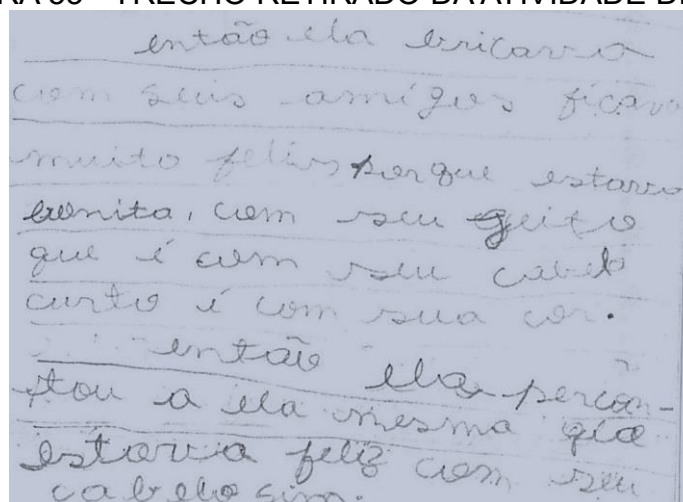 RA 33 – TRECHO RETIRADO DA ATIVIDADE D
então ela bricava
com seus amigos ficava
muito felis porque estava
bonita, com seu geito
que é com seu cabelo
curto é com sua cor.
então ela percon-
tou a ela mesma qia
estava feliz com seu
cabelo sim.